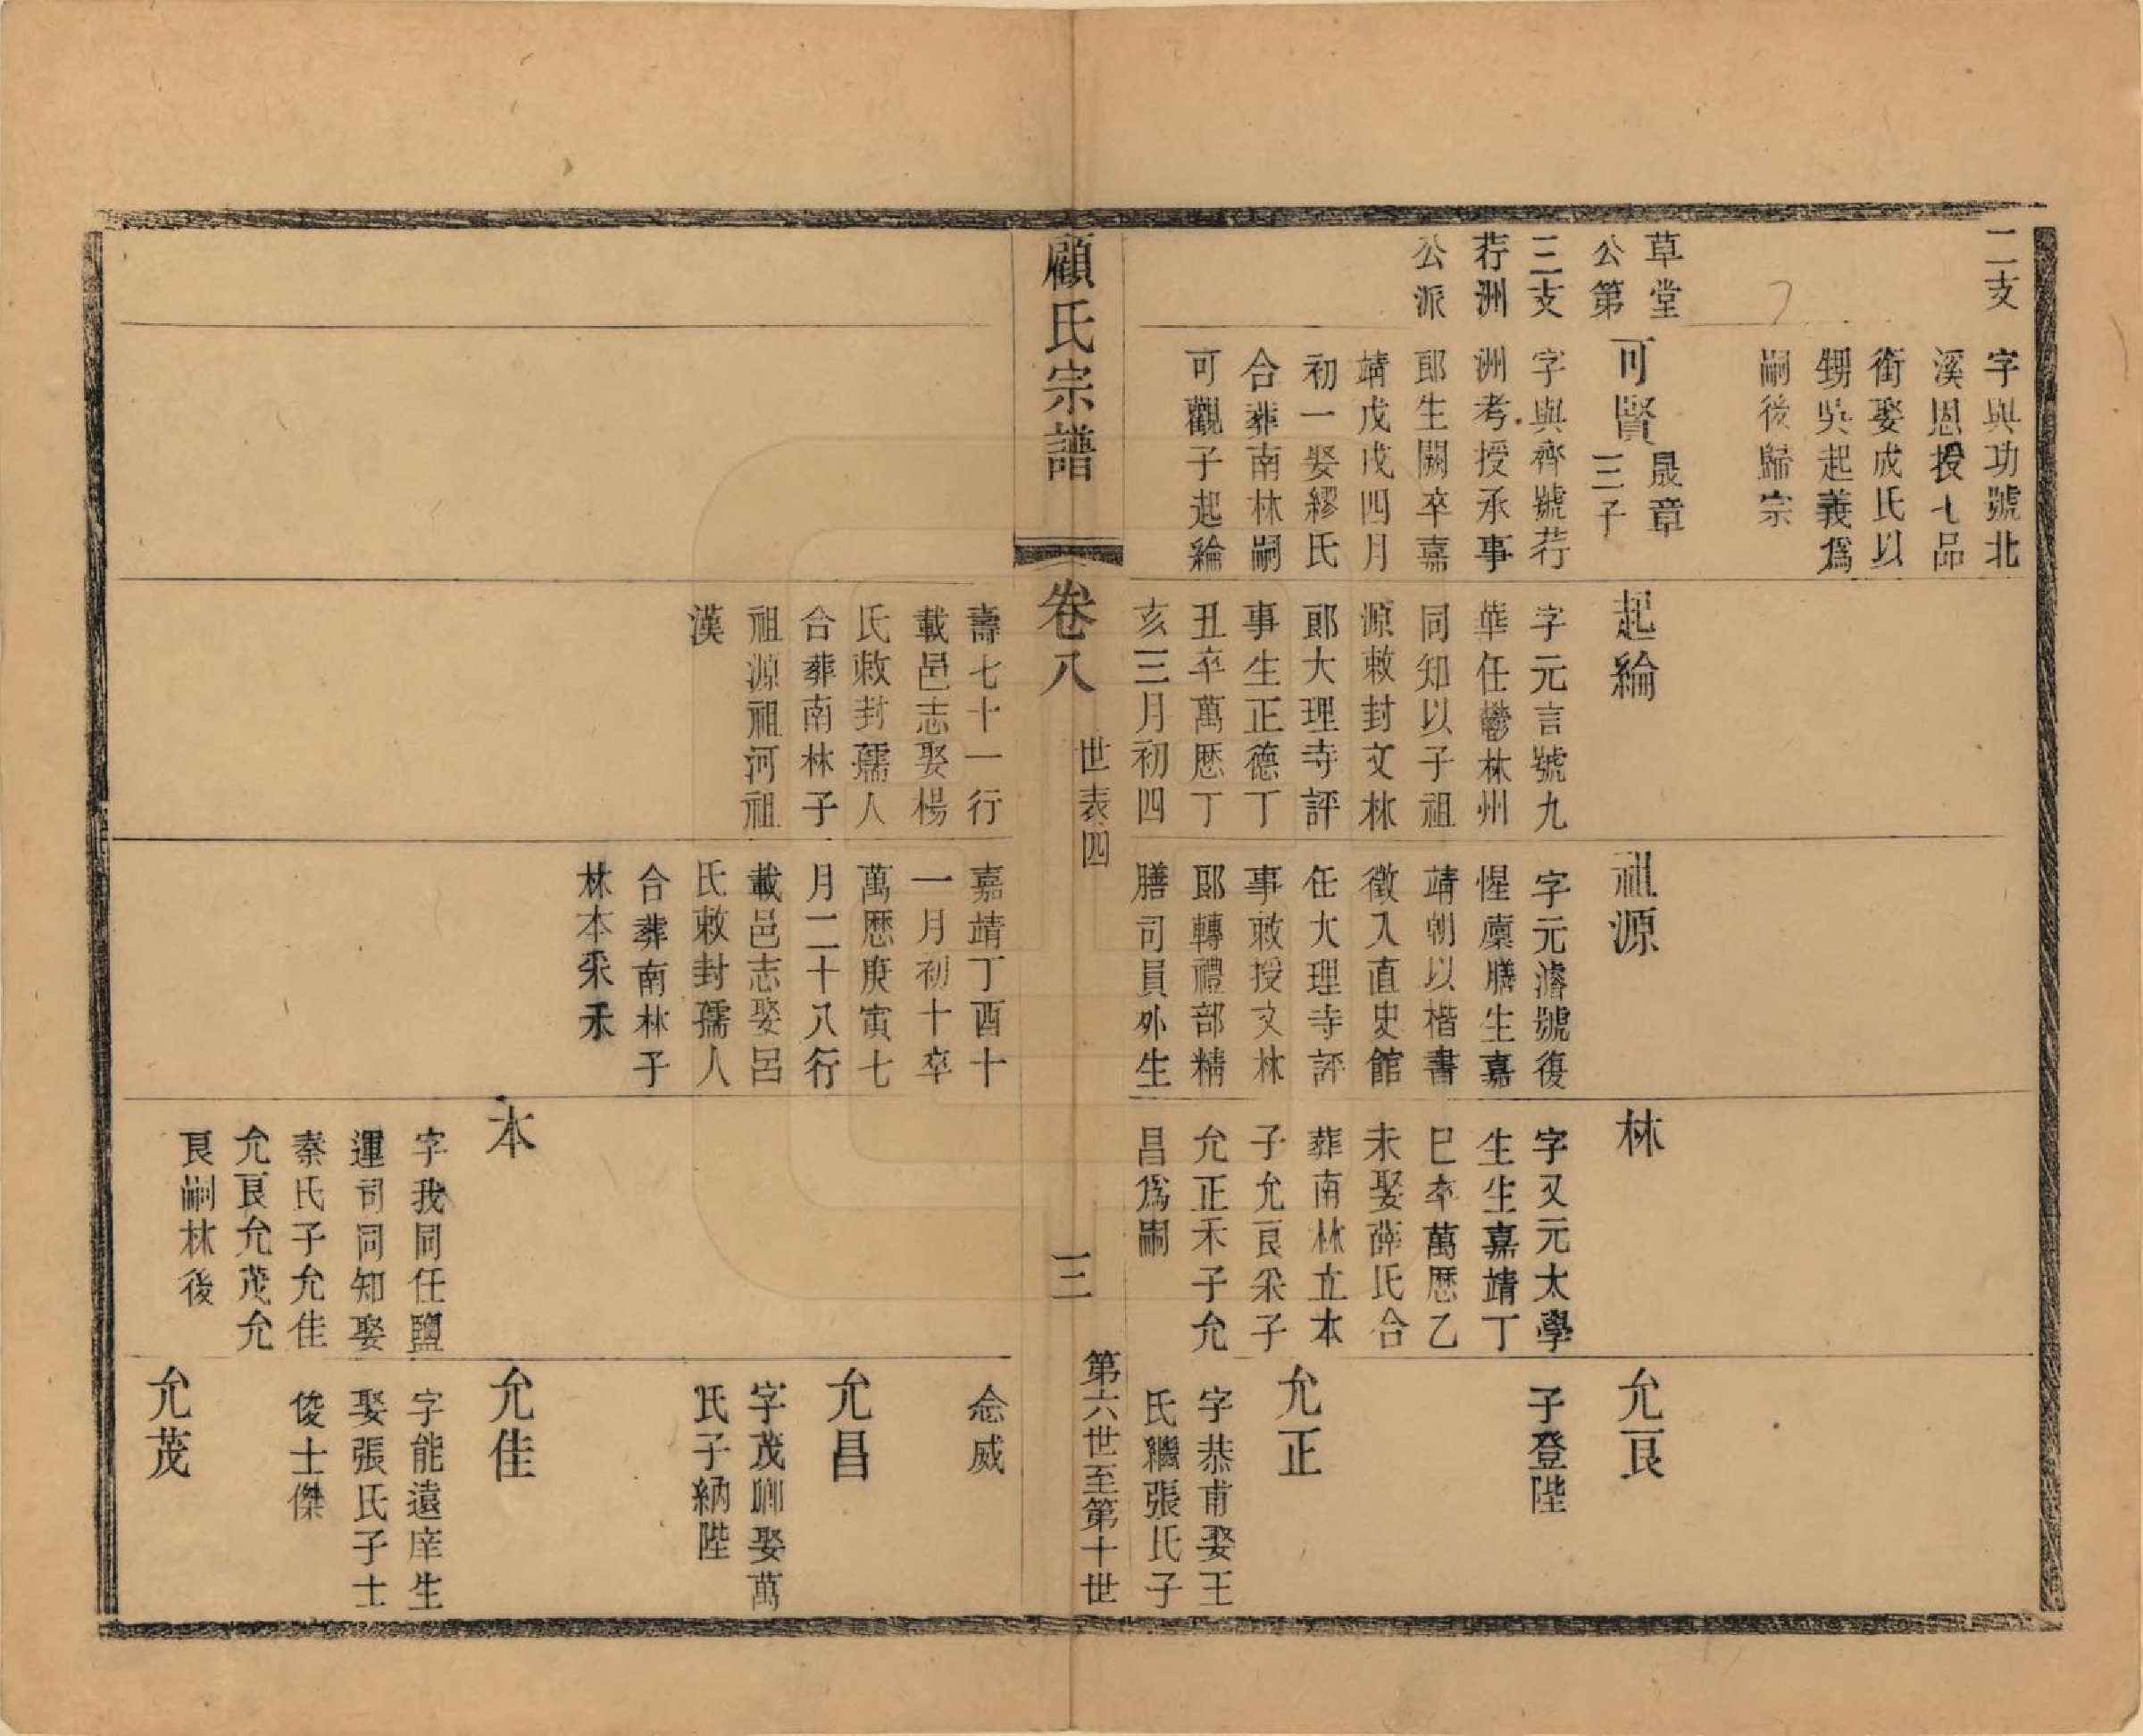 二支
字與功號北
溪恩授七品
銜娶成氏以
甥吳起義爲
嗣後歸宗
草堂
公第
三支
荐洲
公派
可賢
晟章
三子
字與齊號荐
洲考授承事
郎生闕卒嘉
靖戊戌四月
初一娶繆氏
合葬南林嗣
可觀子起綸
起綸
字元言號九
華任鬱林州
同知以子祖
源敕封文林
郎大理寺評
事生正德丁
丑卒萬厯丁
亥三月初四
祖源
字元濬號復
惺廩膳生嘉
靖朝以楷書
徵入直史館
任大理寺評
事敕授文林
郎轉禮部精
膳司員外生
林
字又元太學
生生嘉靖丁
巳卒萬厯乙
未娶薛氏合
葬南林立本
子允良釆子
允正禾子允
昌爲嗣
允良
子登陛
允正
字恭甫娶王
氏繼張氏子
顧氏宗譜
卷八
世表四
三
第六世至第十世
壽七十一行
載邑志娶楊
氏敕封孺人
合葬南林子
祖源祖河祖
漢
嘉靖丁酉十
一月初十卒
萬厯庚寅七
月二十八行
載邑志娶呂
氏敕封孺人
合葬南林子
林本釆禾
本
字我同任鹽
運司同知娶
秦氏子允佳
允良允茂允
良嗣林後
念威
允昌
字茂卿娶萬
氏子納陛
允佳
字能遠庠生
娶張氏子士
俊士傑
允茂